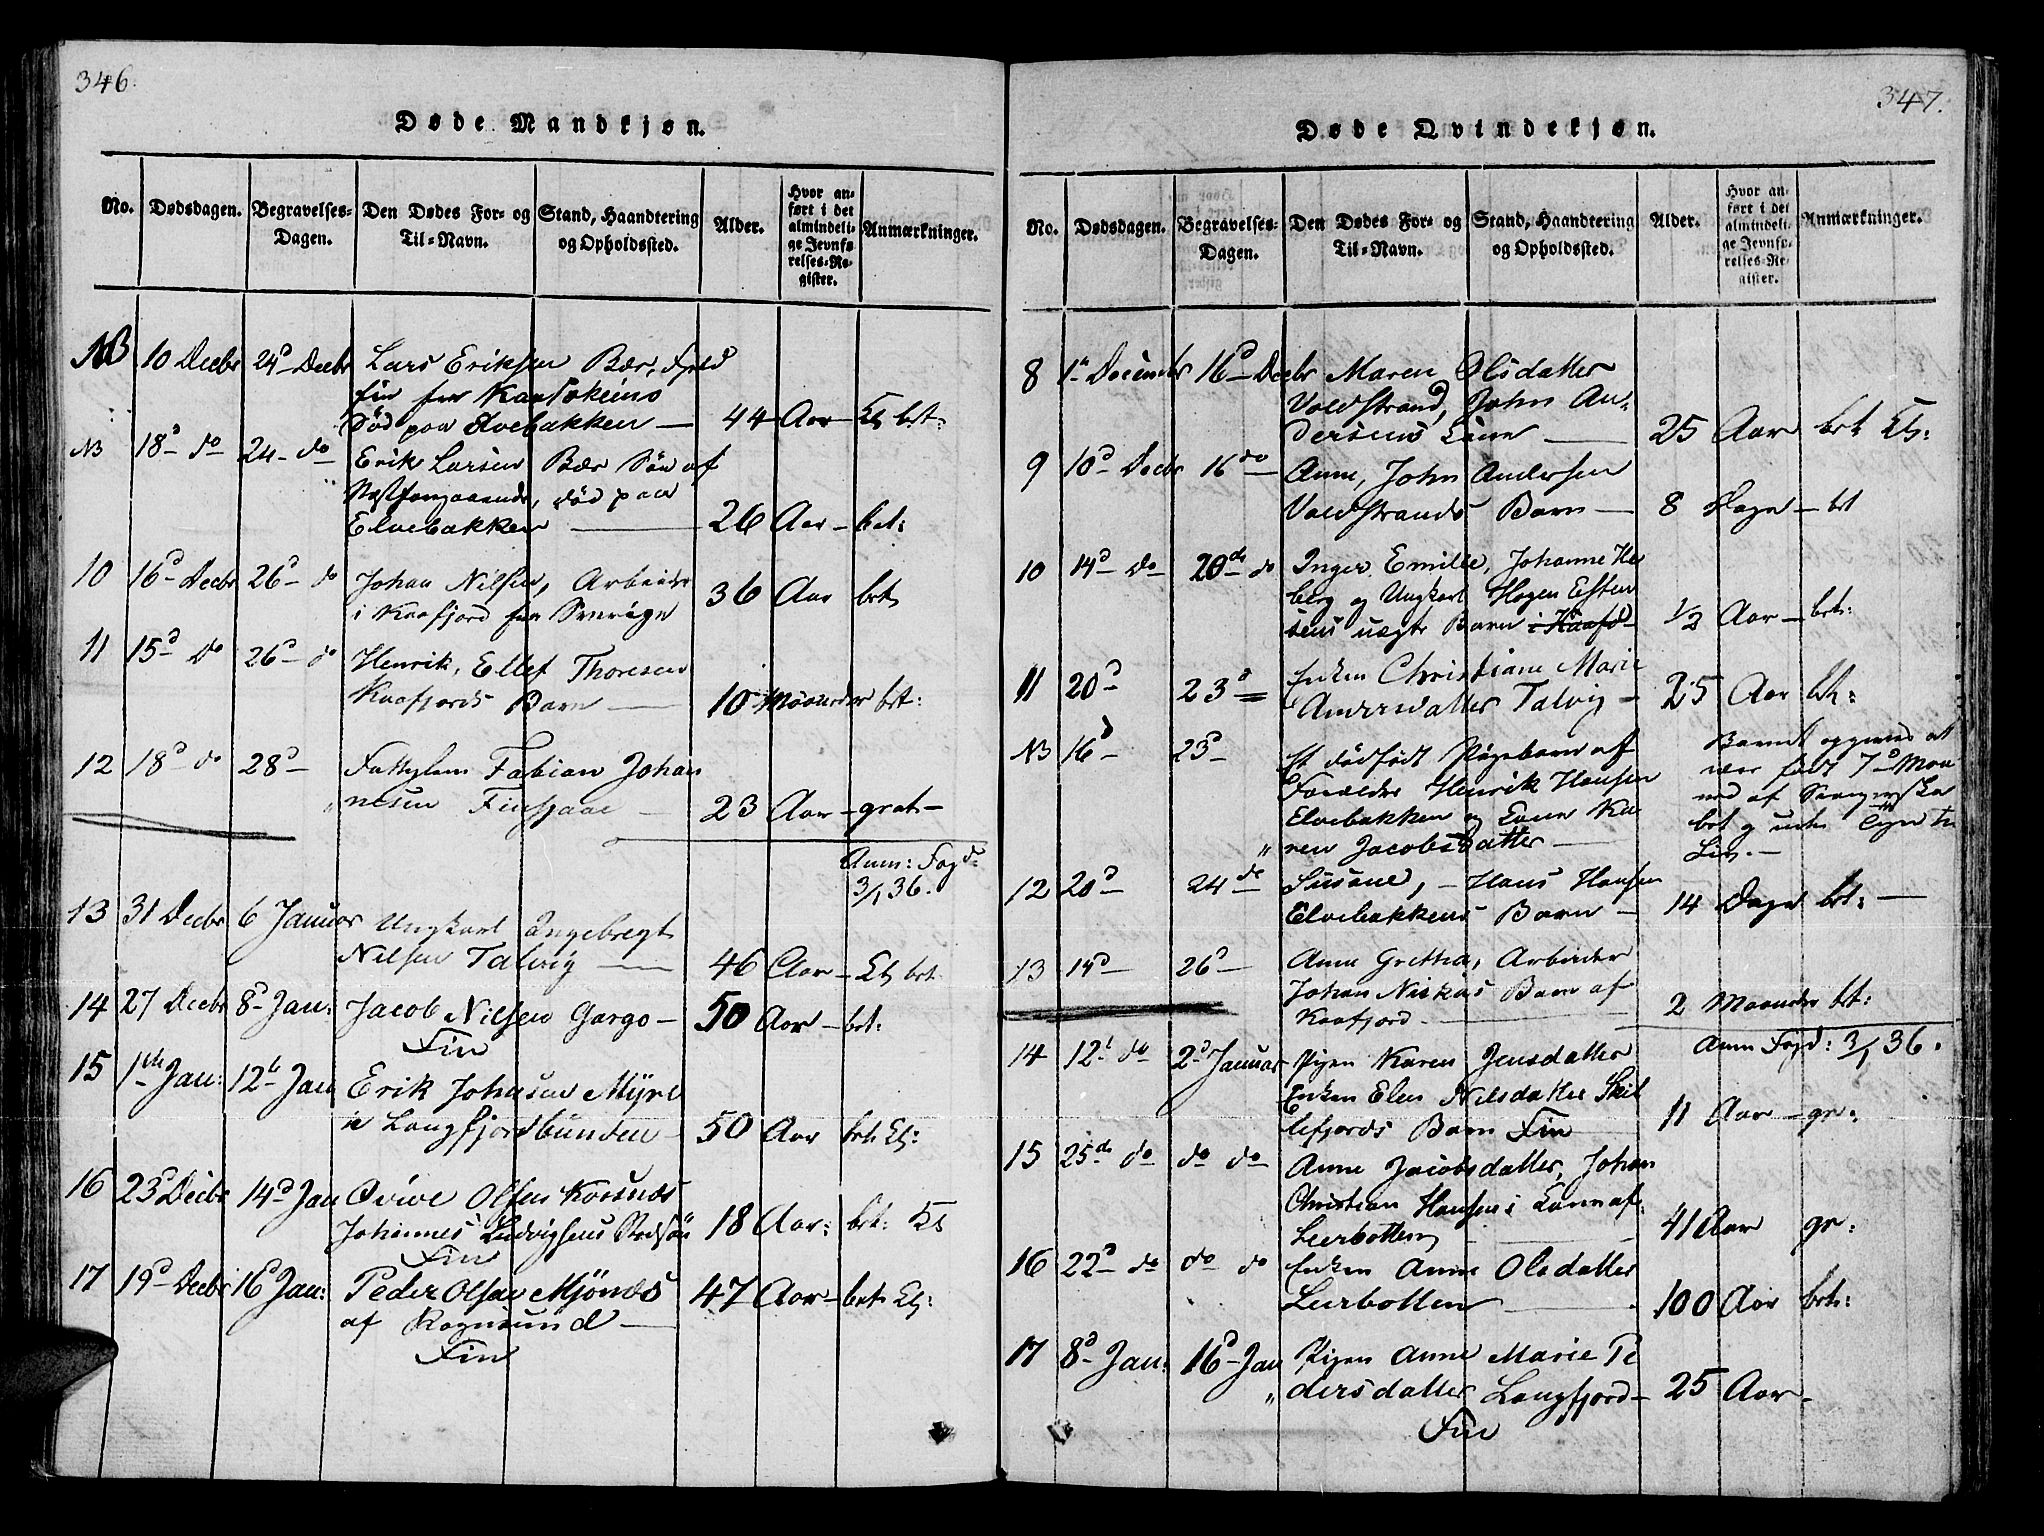 346.
Døde Mandkjøn.
No. Dødsdagen. Begravelses-Dagen. Den Dødes For- og Til-Navn. Stand, Haandtering og Opholdssted. Alder. Hvor anført i det almindelige Jevnførelses-Register. Anmærkninger.
NB 10 Decbr 24d Decbr Lars Eriksen Bær, Fjeld
fin fra Kautokeino
død paa Elvebakken — 44 Aar — bet:
NB 18d do 24 do Erik Larsen Bær Søn af
Næstforgaaende, død paa
Elvebakken — 26 Aar — bet:
10 16d Decbr 26d do Johan Nilsen, Arbeider
i Kaafjord fra Sverige 36 Aar bet
11 15d do 26d do Henrik, Ellef Thoresen
Kaafjords Barn — 10 Maaneder bet:
12 18d do 28d — Fattiglem Fabian Johan
nesen — 23 Aar — grat —
Anm: Fogd
3/1 36.
13 31 Decbr 6 Januar Ungkarl Ingebregt
Nilsen Talvig — 46 Aar — bet
14 27 Decbr 8d Jan: Jacob Nilsen Gargo — 50 Aar — bet:
Fin
15 1ste Jan: 12te Jan Erik Johnsen
Langfjordbunden — 50 Aar bet
16 23d Decbr 14d Jan Olsen Korsnæs
Johannes Ludvigsens Stedsøn 18 Aar: bet:
Fin
17 19d Decbr 16d Jan: Peder Olsen Mjønæs 47 Aar — bet
af Rognsund —
Fin
347.
Døde Qvindekjøn.
No. Dødsdagen. Begravelses-Dagen. Den Dødes For- og Til-Navn. Stand, Haandtering og Opholdssted. Alder. Hvor anført i det almindelige Jevnførelses-Register. Anmærkninger.
8 1ste December 16d Decbr Maren Olsdatter
Voldstrand, John An-
dersens Kone — 25 Aar bet
9 10d Decbr 16 do Anne, John Andersen
Voldstrands Barn — 8 Dage — bet
10 14d do 20de do Inger Emilie, Johanne
berg og Ungkarl Hogen Esten
sens uægte Barn i Kaafd 1/2 Aar — bet:
11 20d 23d Enken Christiane Marie
Andersdatter Talvig — 25 Aar bet:
NB 16d — 23d — Et dødfødt Pigebarn af
Forældre Henrik Hansen
Elvebakken og Kone Ka
ren Jacobsdatter —
Barnet opgives at
være født 7d Maa
ned af Svangerska
bet og uden Tegn til
Liv. —
12 20d — 24de Susane, — Hans Hansen
Elvebakkens Barn — 14 Dage bet: —
13 14d — 26d — Anne Grethe, Arbeider
Johan Niskas Barn af
Kaafjord — 2 Maaneder bet:
Anm Fogd: 3/1 36.
14 12te do 2d Januar Pigen Karen Jensdatter
Enken Elen Nilsdatter
fjords Barn Fin 11 Aar — gr:
15 25de do do do Anne Jacobsdatter, Johan
Christian Hansens Kone af
Leerbotten 41 Aar gr:
16 22d do do do Enken Anne Olsdatter
Leerbotten — 100 Aar bet:
17 8d Jan: 16d Jan Pigen Anne Marie Pe
dersdatter Langfjord — 25 Aar —
Fin